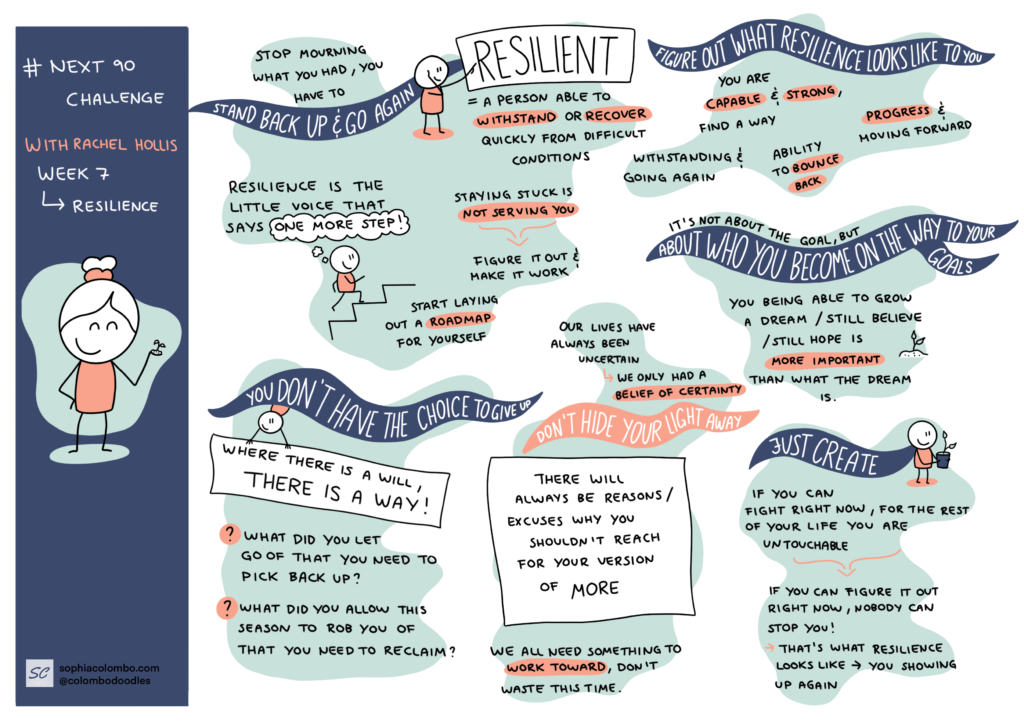 # NEXT 90
CHALLENGE
WITH RACHEL HOLLIS
WEEK 7
RESILIENCE
sophiacolombo.com
@colombodoodles
SC
STOP MOURNING
WHAT YOU HAD, YOU
HAVE TO
STAND BACK UP & GO AGAIN
RESILIENT
= A PERSON ABLE TO
WITHSTAND OR RECOVER
QUICKLY FROM DIFFICULT
CONDITIONS
RESILIENCE IS THE
LITTLE VOICE THAT
SAYS ONE MORE STEP!
STAYING STUCK IS
NOT SERVING YOU
FIGURE IT OUT &
MAKE IT WORK
START LAYING
OUT A ROADMAP
FOR YOURSELF
FIGURE OUT WHAT RESILIENCE LOOKS LIKE TO YOU
YOU ARE
CAPABLE & STRONG,
FIND A WAY
PROGRESS &
MOVING FORWARD
WITHSTANDING &
GOING AGAIN
ABILITY
TO BOUNCE
BACK
IT'S NOT ABOUT THE GOAL, BUT
ABOUT WHO YOU BECOME ON THE WAY TO YOUR
GOALS
YOU BEING ABLE TO GROW
A DREAM / STILL BELIEVE
/ STILL HOPE IS
MORE IMPORTANT
THAN WHAT THE DREAM
IS.
YOU DON'T HAVE THE CHOICE TO GIVE UP
WHERE THERE IS A WILL,
THERE IS A WAY!
? WHAT DID YOU LET
GO OF THAT YOU NEED TO
PICK BACK UP?
? WHAT DID YOU ALLOW THIS
SEASON TO ROB YOU OF
THAT YOU NEED TO RECLAIM?
OUR LIVES HAVE
ALWAYS BEEN
UNCERTAIN
WE ONLY HAD A
BELIEF OF CERTAINTY
DON'T HIDE YOUR LIGHT AWAY
THERE WILL
ALWAYS BE REASONS/
EXCUSES WHY YOU
SHOULDN'T REACH
FOR YOUR VERSION
OF MORE
WE ALL NEED SOMETHING TO
WORK TOWARD, DON'T
WASTE THIS TIME.
JUST CREATE
IF YOU CAN
FIGHT RIGHT NOW, FOR THE REST
OF YOUR LIFE YOU ARE
UNTOUCHABLE
IF YOU CAN FIGURE IT OUT
RIGHT NOW, NOBODY CAN
STOP YOU!
→ THAT'S WHAT RESILIENCE
LOOKS LIKE → YOU SHOWING
UP AGAIN